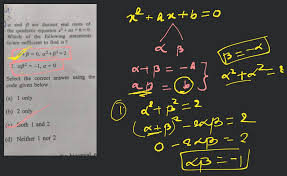 α and β are distinct real roots of
the quadratic equation x² + ax + b = 0.
Which of the following statements
is/are sufficient to find α?
1. α + β = 0, α² + β² = 2
2. αβ² = -1, a = 0
Select the correct answer using the
code given below
(a) 1 only
(b) 2 only
(c) Both 1 and 2
(d) Neither 1 nor 2
x² + ax + b = 0
α β
α + β = -a
αβ = b
β = -α
α² + α² = 2
① α² + β² = 2
(α + β)² - 2αβ = 2
0 - 2αβ = 2
αβ = -1